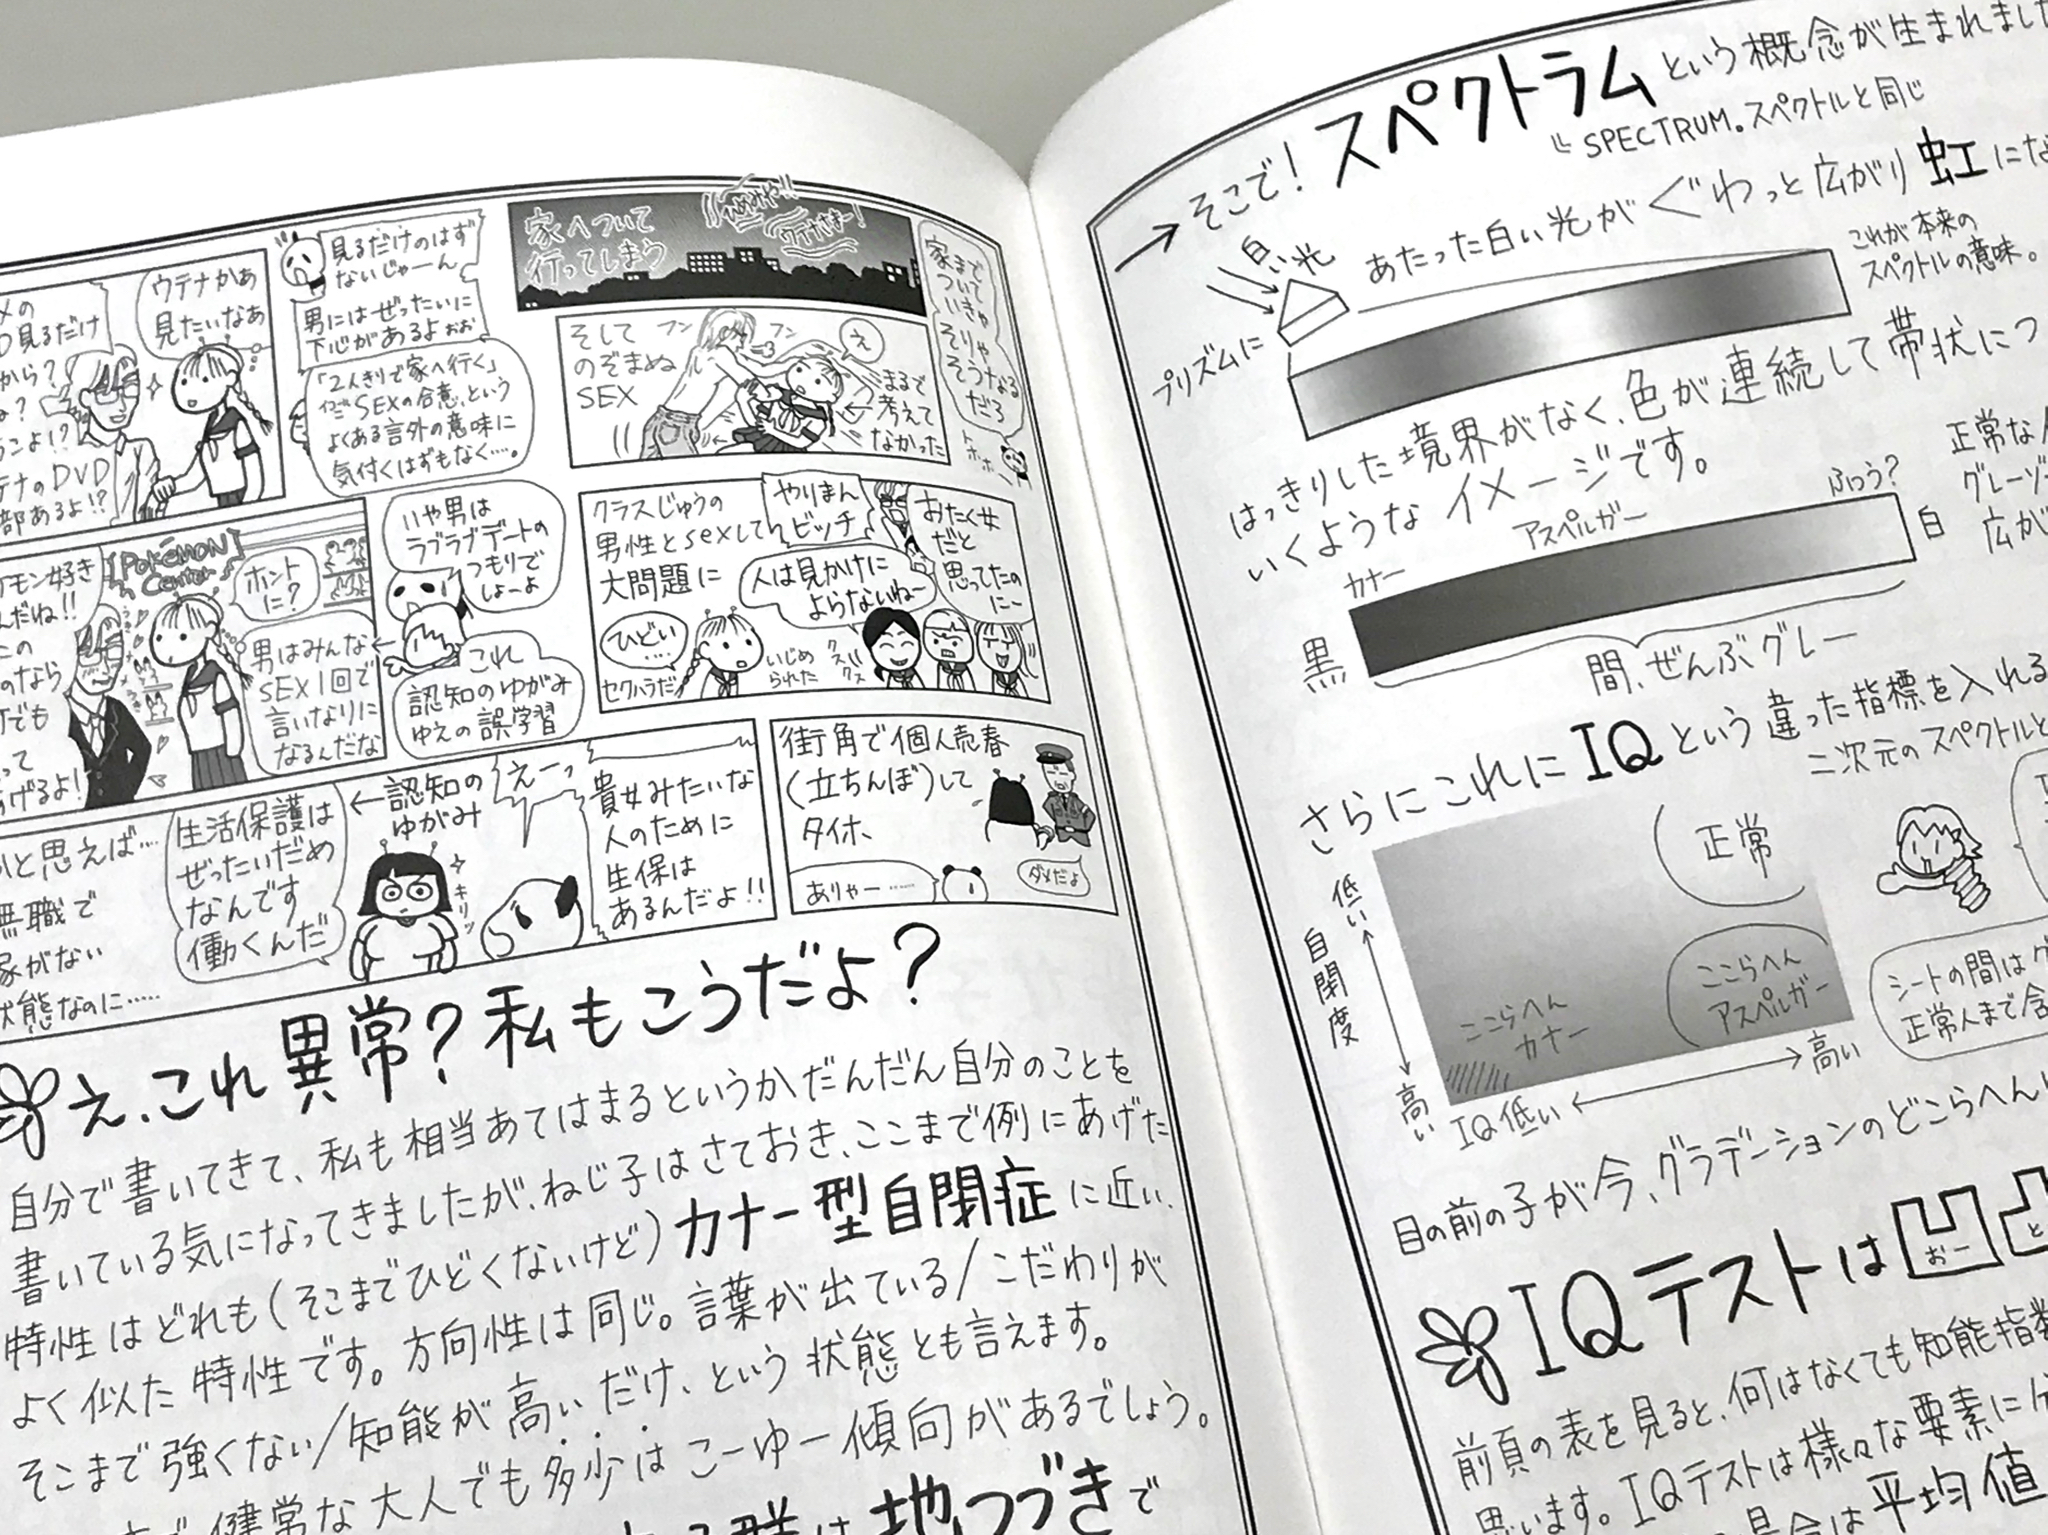 見るだけのはず
ないじゃーん
男にはぜったいに
下心があるよぉぉ
ウテナかぁ
見たいなぁ
見るだけ
から?
テナのDVD
部あるよ!?
「2人きりで家へ行く」
SEXの合意、という
よくある言外の意味に
気付くはずもなく…。
家へついて
行ってしまう
ひめみや!!
ウテナさまー!
家まで
ついてきゃ
そりゃ
そうなる
だろ
トホホ
そして
のぞまぬ
SEX
フン
フン
え
まるで
考えて
なかった
モン好き
んだね!!
この
のなら
でも
って
あげるよ!
Pokémon
Center
ホント
に?
男はみんな
SEX1回で
言いなりに
なるんだな
いや男は
ラブラブデートの
つもりで
しょーよ
これ
認知のゆがみ
ゆえの誤学習
クラスじゅうの
男性とsexして
大問題に
やりまん
ビッチ
おたく女
だと
思ってたの
にー
人は見かけに
よらないねー
ひどい
…
セクハラだ
いじめ
られた
クスクス
クス
と思えば…
無職で
家がない
状態なのに……
生活保護は
ぜったいだめ
なんです
働くんだ
←認知の
ゆがみ
キリッ
えーっ
貴女みたいな
人のために
生保は
あるんだよ!!
街角で個人売春
(立ちんぼ)して
タイホ
ありゃー……
ダメだよ
え、これ異常?私もこうだよ?
自分で書いてきて、私も相当あてはまるというかだんだん自分のことを
書いている気になってきましたが、ねじ子はさておき、ここまで例にあげた
特性はどれも(そこまでひどくないけど)カナー型自閉症に近い、
よく似た特性です。方向性は同じ。言葉が出ている/こだわりが
そこまで強くない/知能が高いだけ、という状態とも言えます。
健常な大人でも多少はこーゆー傾向があるでしょう。
群は地つづきで
→そこで!スペクトラムという概念が生まれまし
SPECTRUM。スペクトルと同じ
白い光
プリズムに
あたった白い光がぐわっと広がり虹にな
これが本来の
スペクトルの意味。
はっきりした境界がなく、色が連続して帯状につ
いくようなイメージです。
カナー
アスペルガー
ふつう?
黒
白
間、ぜんぶグレー
正常な
グレーゾ
広が
さらにこれにIQという違った指標を入れる
二次元のスペクトルと
低い
自閉度
高い
正常
ここらへん
カナー
ここらへん
アスペルガー
IQ低い
高い
シートの間はグ
正常人まで含
目の前の子が今、グラデーションのどこらへん
IQテストは凹凸
おー
と
前頁の表を見ると、何はなくても知能指数
思います。IQテストは様々な要素に分
平均値